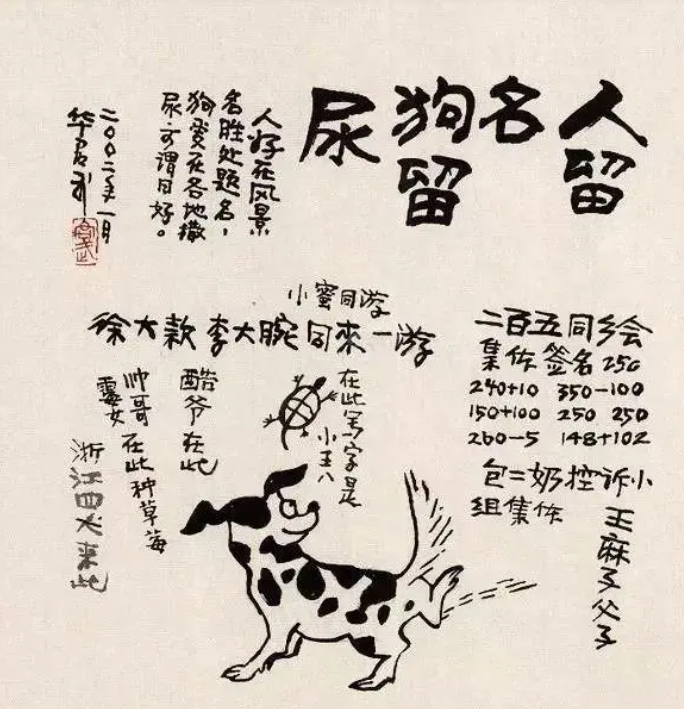 人留
名
狗留
尿
人好在风景
名胜处题名，
狗爱在各地撒
尿，可谓同好。
二〇〇二年一月
华君武
二百五同乡会
集体签名 250
240+10 350-100
150+100 250 250
260-5 148+102
包二奶控诉小
组集体
王麻子父子
小蜜同游
徐大款 李大腕 同来一游
在此写字是
小王八
酷爷在此
帅哥 在此种草莓
靓女
浙江四犬来此